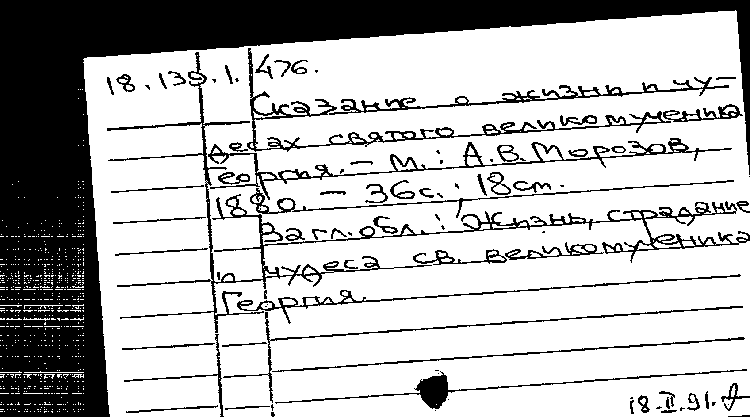 18.139.1.476.
Сказание о жизни и чу-
десах святого великомученика
Георгия. - М.: А.В. Морозов,
1880. - 36с.; 18см.
Загл. обл.: Жизнь, страдание
и чудеса св. великомученика
Георгия.
18.II.91.